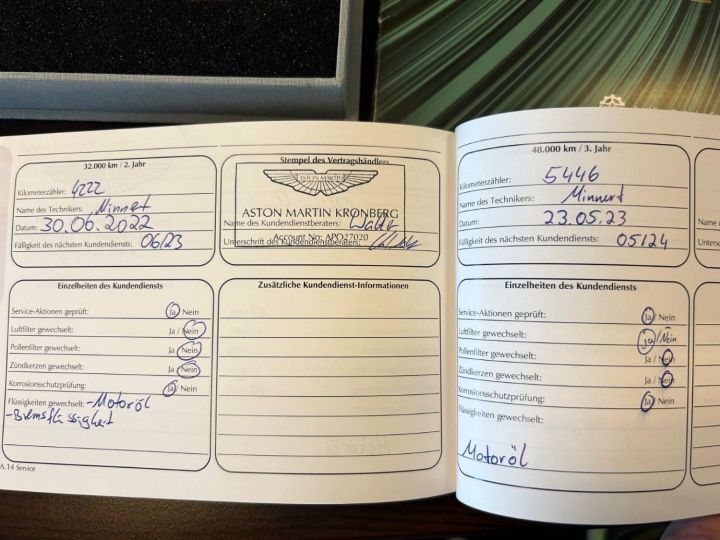 32.000 km / 2. Jahr
Kilometerzähler: 4222
Name des Technikers: Minnert
Datum: 30.06.2022
Fälligkeit des nächsten Kundendiensts: 06/23
Stempel des Vertragshändlers
ASTON MARTIN
ASTON MARTIN KRONBERG
Name des Kundendienstberaters:
Account No: APO27020
Unterschrift des Kundendienstberaters:
Einzelheiten des Kundendiensts
Service-Aktionen geprüft: Ja / Nein
Luftfilter gewechselt: Ja / Nein
Pollenfilter gewechselt: Ja / Nein
Zündkerzen gewechselt: Ja / Nein
Korrosionsschutzprüfung: Ja / Nein
Flüssigkeiten gewechselt: - Motoröl
- Bremsflüssigkeit
Zusätzliche Kundendienst-Informationen
A.14 Service
48.000 km / 3. Jahr
Kilometerzähler: 5446
Name des Technikers: Minnert
Datum: 23.05.23
Fälligkeit des nächsten Kundendiensts: 05/24
Einzelheiten des Kundendiensts
Service-Aktionen geprüft: Ja / Nein
Luftfilter gewechselt: Ja / Nein
Pollenfilter gewechselt: Ja / Nein
Zündkerzen gewechselt: Ja / Nein
Korrosionsschutzprüfung: Ja / Nein
Flüssigkeiten gewechselt:
Motoröl
Name